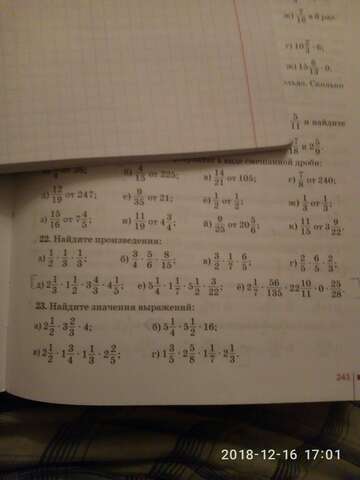 ж) 7/16 в 8 раз.
г) 10 2/3 · 6;
ж) 15 8/13 · 0.
Сколько
5/11 и найдите
7/18 и 2 5/9.
в виде смешанной дроби:
4/15 от 225; в) 14/21 от 105; г) 7/8 от 240;
д) 12/19 от 247; е) 9/35 от 21; ё) 1/2 от 1/2; ж) 1/3 от 1/3;
з) 15/16 от 7 4/5; и) 11/19 от 4 3/4; й) 9/25 от 20 5/6; к) 11/15 от 3 9/22.
22. Найдите произведения:
а) 1/2 · 1/3 · 1/3; б) 3/4 · 5/6 · 8/15; в) 3/2 · 1/7 · 6/5; г) 2/5 · 6/5 · 2/3;
д) 2 1/3 · 1 2/3 · 3 3/4 · 4 1/5; е) 5 1/4 · 1 1/7 · 5 1/2 · 3/22; ё) 2 1/7 · 56/135 · 22 10/11 · 0 · 25/28.
23. Найдите значения выражений:
а) 2 1/2 · 3 2/3 · 4; б) 5 1/4 · 5 1/2 · 16;
в) 2 1/2 · 1 3/4 · 1 1/3 · 2 2/5; г) 1 3/5 · 2 5/8 · 1 1/7 · 2 1/3.
243
2018-12-16 17:01